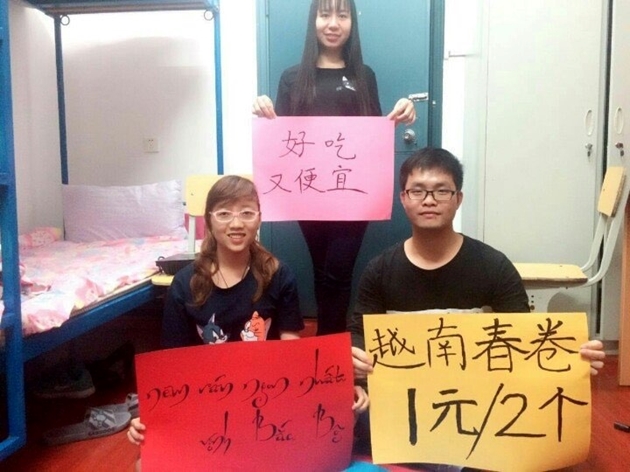 好吃
又便宜
nem rán ngon nhất
vịnh Bắc Bộ
越南春卷
1元/2个